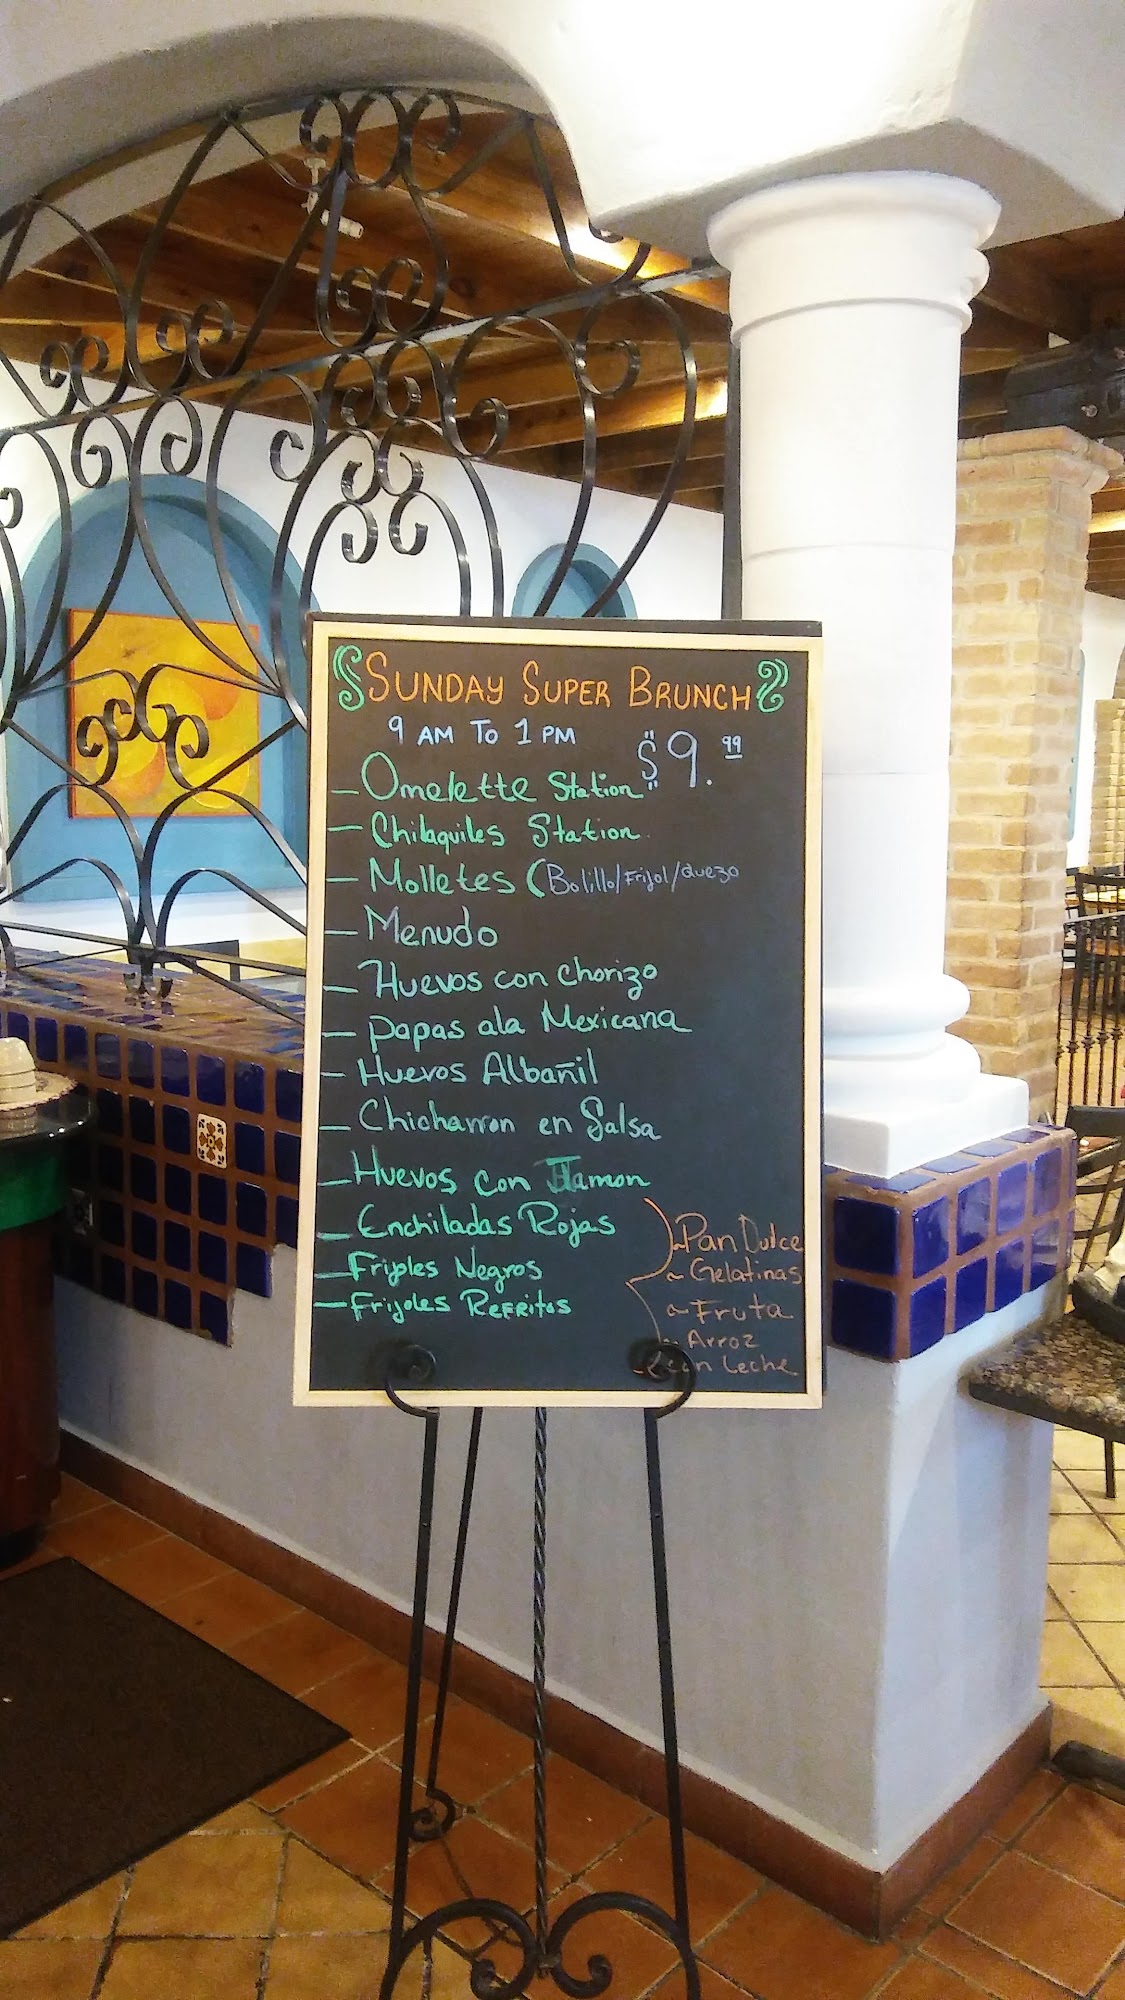 SUNDAY SUPER BRUNCH
9 AM TO 1 PM
$9.99
- Omelette Station
- Chilaquiles Station
- Molletes (Bolillo/Frijol/Quezo
- Menudo
- Huevos con chorizo
- papas ala Mexicana
- Huevos Albañil
- Chicharron en Salsa
- Huevos con Jamon
- Enchiladas Rojas
- Frijoles Negros
- Frijoles REFRITOS
~ Pan Dulce
~ Gelatinas
~ Fruta
~ Arroz
con Leche